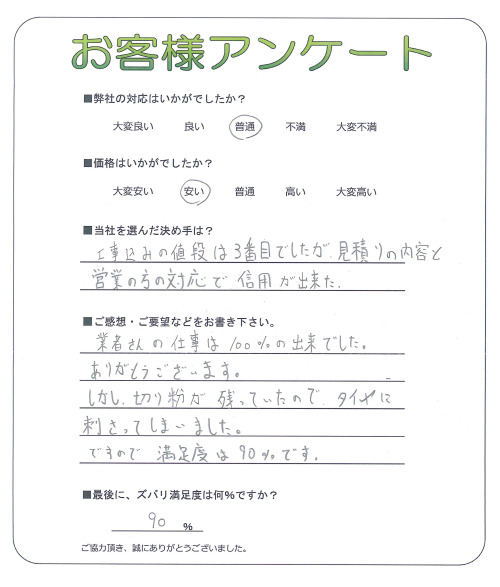 お客様アンケート
■弊社の対応はいかがでしたか？
大変良い 良い 普通 不満 大変不満
■価格はいかがでしたか？
大変安い 安い 普通 高い 大変高い
■当社を選んだ決め手は？
工事込みの値段は3番目でしたが、見積りの内容と
営業の方の対応で信用が出来た.
■ご感想・ご要望などをお書き下さい。
業者さんの仕事は100%の出来でした。
ありがとうございます。
しかし、切り粉が残っていたので、タイヤに
刺さってしまいました。
ですので満足度は90%です.
■最後に、ズバリ満足度は何%ですか？
90 %
ご協力頂き、誠にありがとうございました。